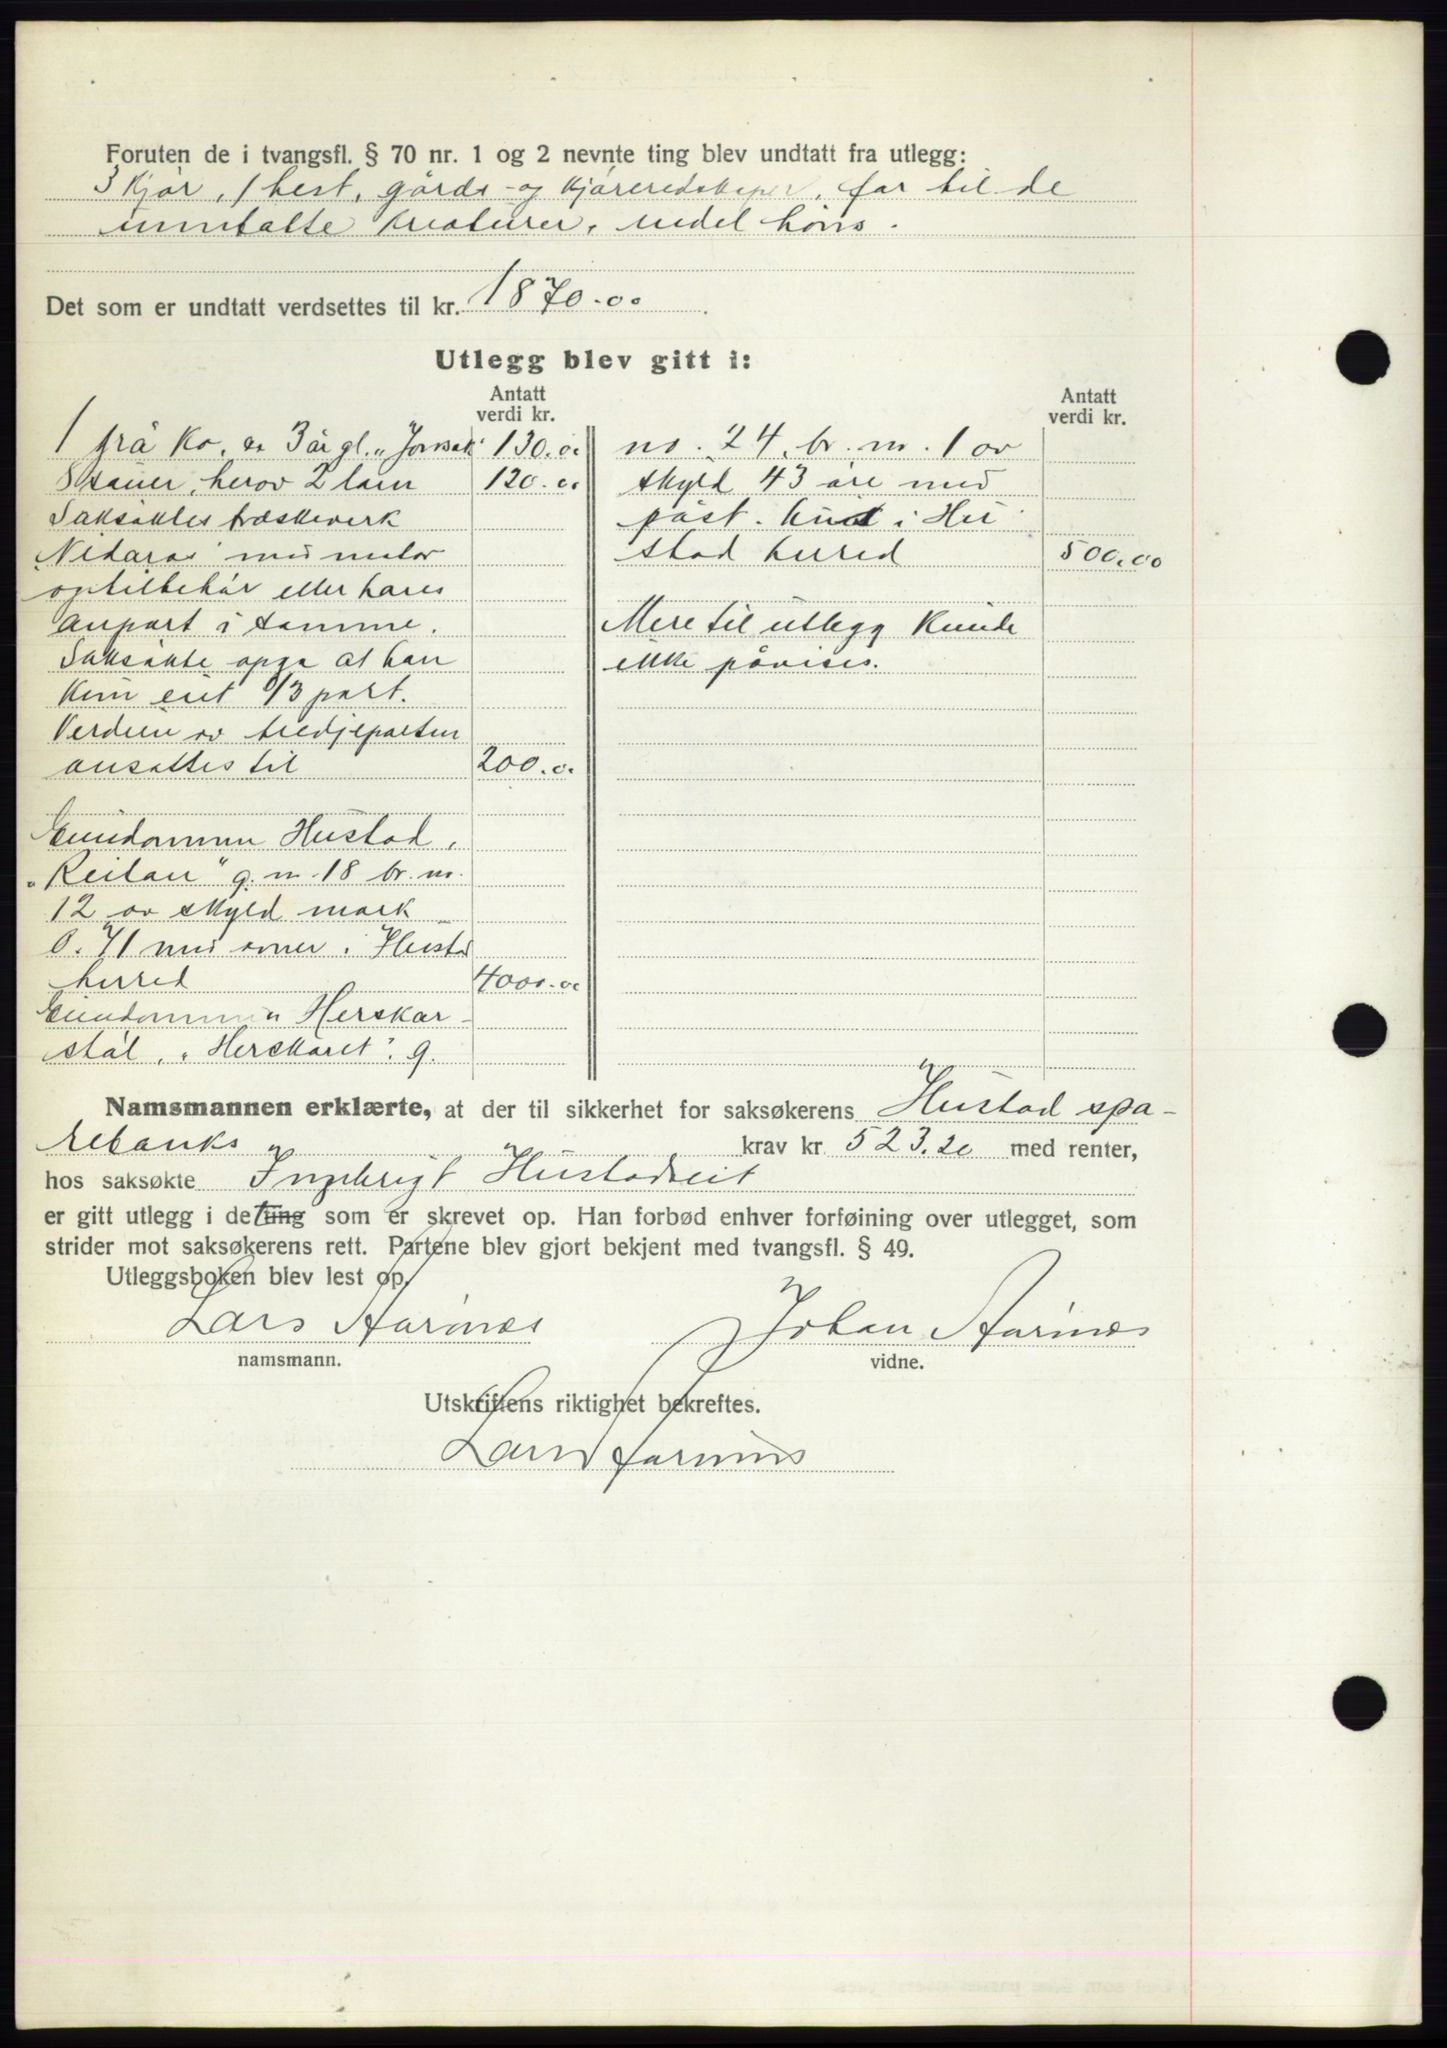 Foruten de i tvangsfl. § 70 nr. 1 og 2 nevnte ting blev undtatt fra utlegg:
3 kjør, 1 hest, gårds- og kjøreredskaper, for til de
unntatte kreaturer, nedel høns.
Det som er undtatt verdsettes til kr. 1870.00
Utlegg blev gitt i:
Antatt
verdi kr.
1 grå ko, ca 3 år gl. 130.00
8 sauer, herav 2 lam 120.00
Saksøktes træskeverk
"Nidaros" med motor
og tilbehør eller hans
anpart i samme.
Saksøkte opga at han
kun eiet 1/3 part.
Verdien av tredjeparten
ansattes til 200.00
Eiendommen Hustad,
"Reitan" g. nr. 18 br. nr.
12 av skyld mark
0.71 med ovner i Hustad
herred 4000.00
Eiendommen Herskar-
støl, "Herskaret". g.
Antatt
verdi kr.
nr. 24, br. nr. 1 av
skyld 43 øre med
påst. hus i Hu
stad herred 500.00
Mere til utlegg kunde
ikke påvises.
Namsmannen erklærte, at der til sikkerhet for saksøkerens Hustad spa-
rebanks krav kr. 523.20 med renter,
hos saksøkte Ingebrigt Hustadreit
er gitt utlegg i de ting som er skrevet op. Han forbød enhver forføining over utlegget, som
strider mot saksøkerens rett. Partene blev gjort bekjent med tvangsfl. § 49.
Utleggsboken blev lest op.
Lars Aarønes Johan Aarønes
namsmann. vidne.
Utskriftens riktighet bekreftes.
Lars Aarønes